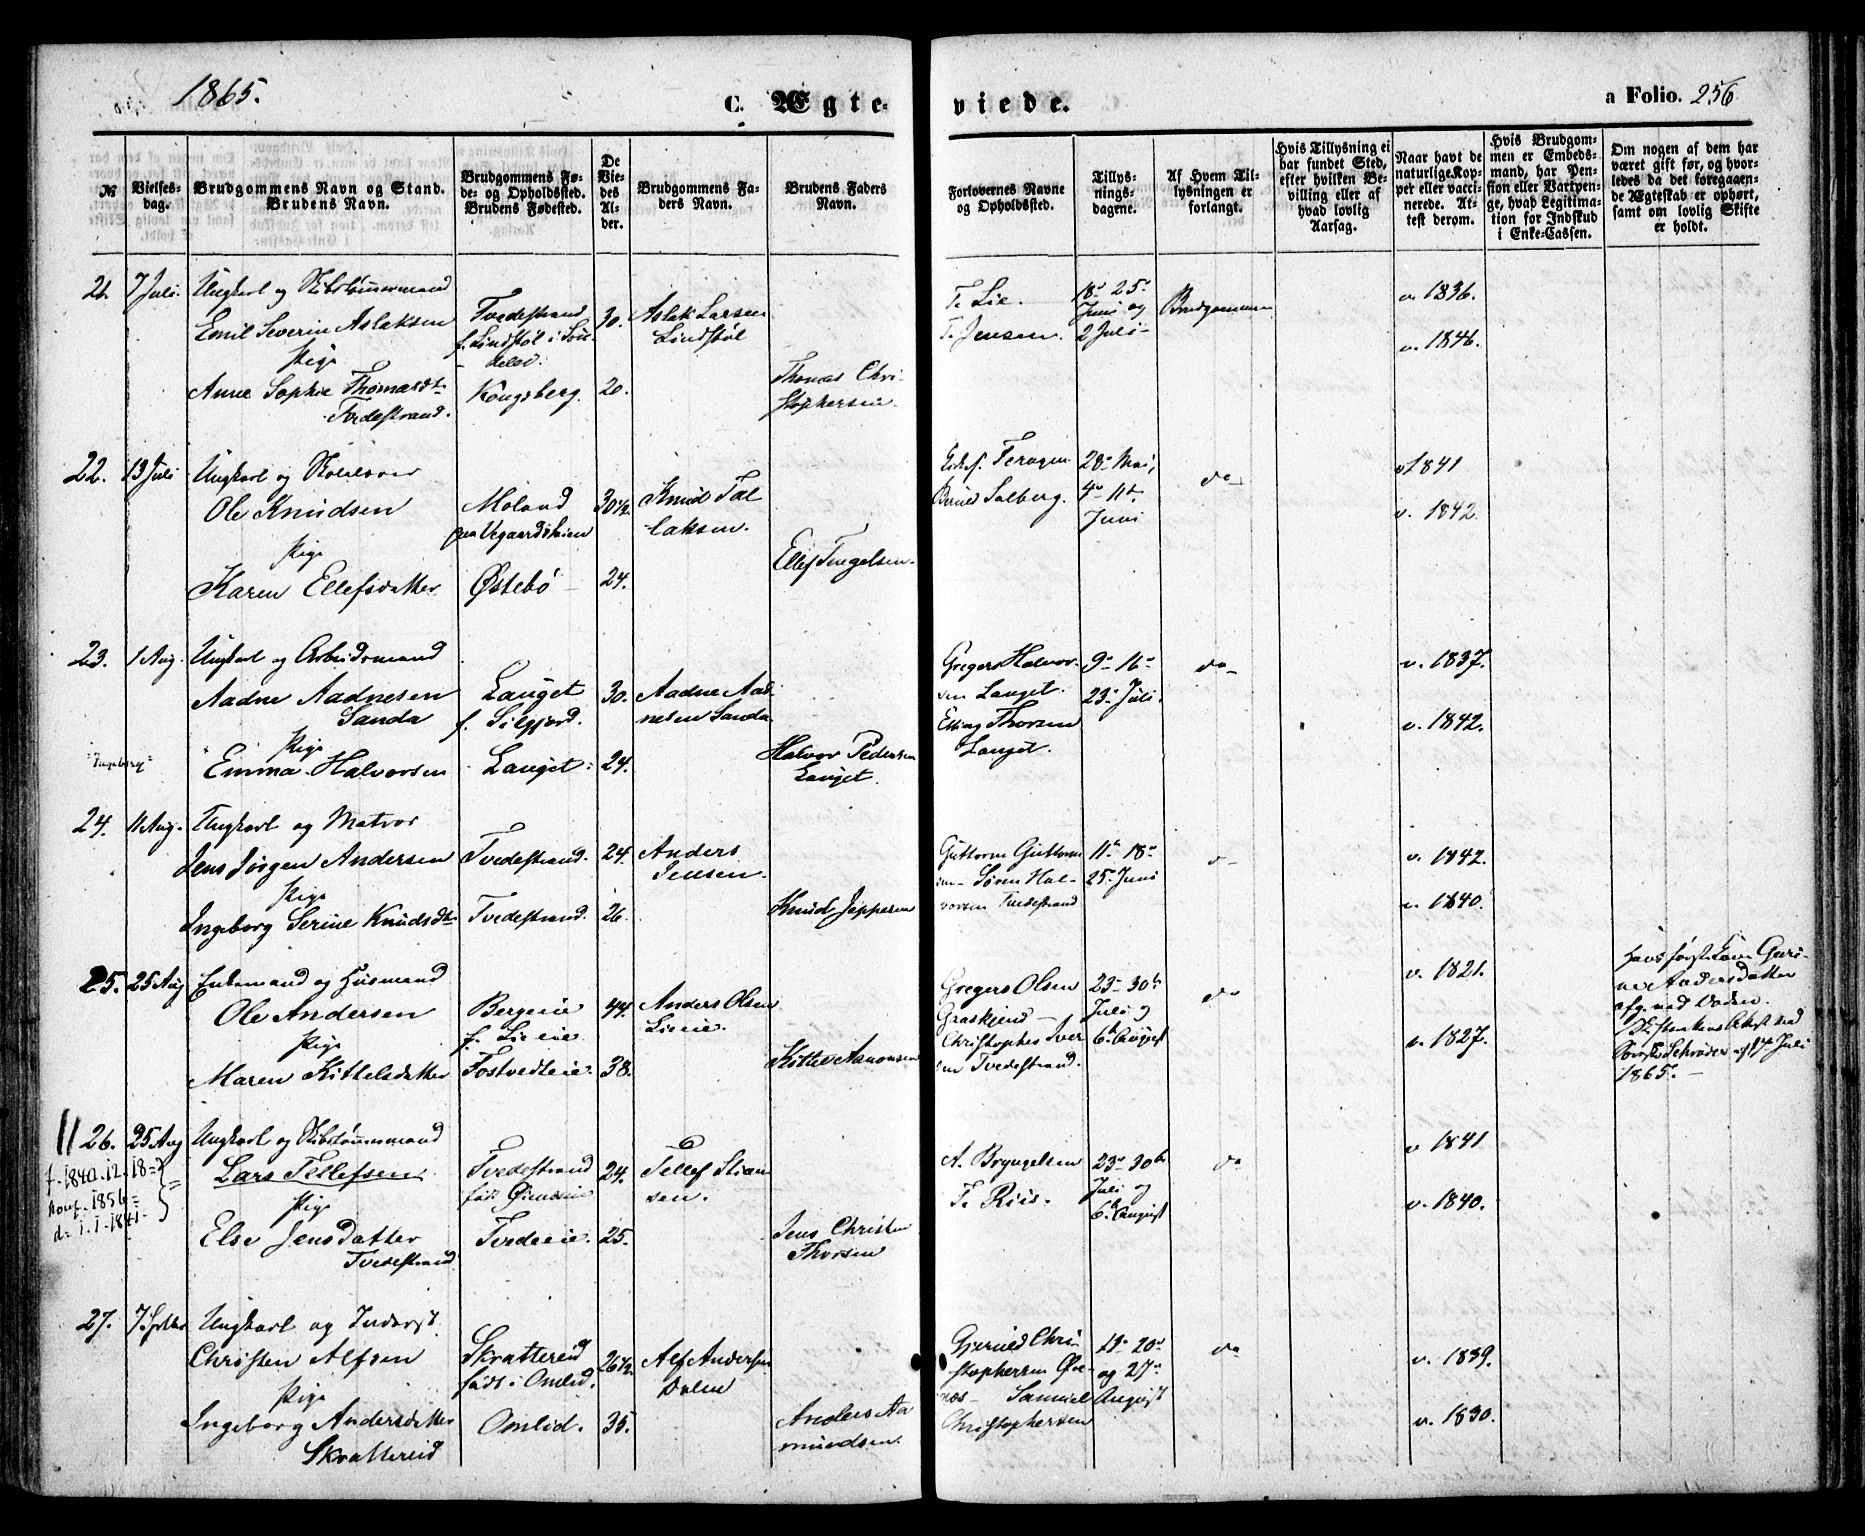 1865.
C. Ægteviede.
a Folio. 256
№
Vielsesdag.
Brudgommens Navn og Stand.
Brudens Navn.
Brudgommens Føde- og Opholdssted.
Brudens Fødested.
De Viedes Alder.
Brudgommens Faders Navn.
Brudens Faders Navn.
Forlovernes Navne og Opholdssted.
Tillysningsdagene.
Af Hvem Tillysningen er forlangt.
Hvis Tillysning ei har fundet Sted, efter hvilken Bevilling eller af hvad lovlig Aarsag.
Naar havt de naturlige Kopper eller vaccinerede. Attest derom.
Hvis Brudgommen er Embedsmand, har Pension eller Vartpenge, hvad Legitimation for Indskud i Enke-Cassen.
Om nogen af dem har været gift før, og hvorledes da det foregaaende Ægteskab er ophørt, samt om lovlig Skifte er holdt.
21. 7 Juli. Ungkarl og Skibstømmermand
Emil Severin Aslaksen
Pige
Anne Sophie Thomasdt
Tvedestrand.
Tvedestrand
f. Lindstøl i Søndeled.
Kongsberg.
30.
20.
Aslak Larsen
Lindstøl
Thomas Christophersen.
T. Lie.
T. Jensen.
18. 25.
Juni og
2 Juli
Brudgommen
v. 1836.
v. 1846.
22. 13 Juli Ungkarl og
Ole Knudsen
Pige
Karen Ellefsdatter
Moland
paa Vegaardsheien
Østebø
30½.
24.
Knud Tallaksen.
Ellef Tengelsen.
Salberg.
28. Mai,
4. 11.
Juni
do
v 1841
v. 1842.
23. 1 Aug. Ungkarl og Arbeidsmand
Aadne Aadnesen
Sanda
Pige
"Ingeborg" Emma Halvorsen
Lauget
f. Silgjord.
Lauget
30.
24.
Aadne Aadnesen Sanda
Halvor Pedersen
Lauget.
Gregers Halvorsen Lauget.
Elling Thorsen
Lauget.
9. 16.
23. Juli.
do
v. 1837.
v. 1842.
24. 11 Aug. Ungkarl og Matros
Jens Jørgen Andersen
Pige
Ingeborg Serine Knudsdt
Tvedestrand.
Tvedestrand.
24.
26.
Anders
Jensen.
Knud Jeppesen
Guttorm Guttormsen Søren Halvorsen Tvedestrand
11. 18.
25. Juni
v. 1842.
v. 1840.
25. 25 Aug Enkemand og Husmand
Ole Andersen
Pige
Maren Kittelsdatter
Bergeie
f. Lieeie
Fostvedteie.
44.
38.
Anders Olsen
Lieeie.
Kittel Aanonsen
Gregers Olsen
Graaskjend
Christopher Iversen Tvedestrand.
23. 30.
Juli og
6. August
do
v. 1821.
v. 1827.
Hans første Kone
Andersdatter
1865.
26. 25 Aug Ungkarl og Skibstømmermand
Lars Tellefsen
Pige
Else Jensdatter
Tvedestrand
f. 1840.12.18
konf. 1856
d. 1.1.1841.
Tvedestrand
Tvedeeie.
24.
25.
Tellef
Jens Christen
Thorsen
A. Bryngelsen
T. Riis.
23. 30.
Juli og
6. August
do
v 1841.
v. 1840.
27. 7. Septbr Ungkarl og Inderst
Christen Alfsen
Pige
Ingeborg Andersdatter
Skrattereid
Skrattereid
født i Omlid.
Omlid.
26½
35.
Alf Andersen
Dalen
Anders Aamundsen.
Gjerulf Christophersen
Samuel
Christophersen
13. 20.
og 27.
August
do
v. 1839.
v. 1830.